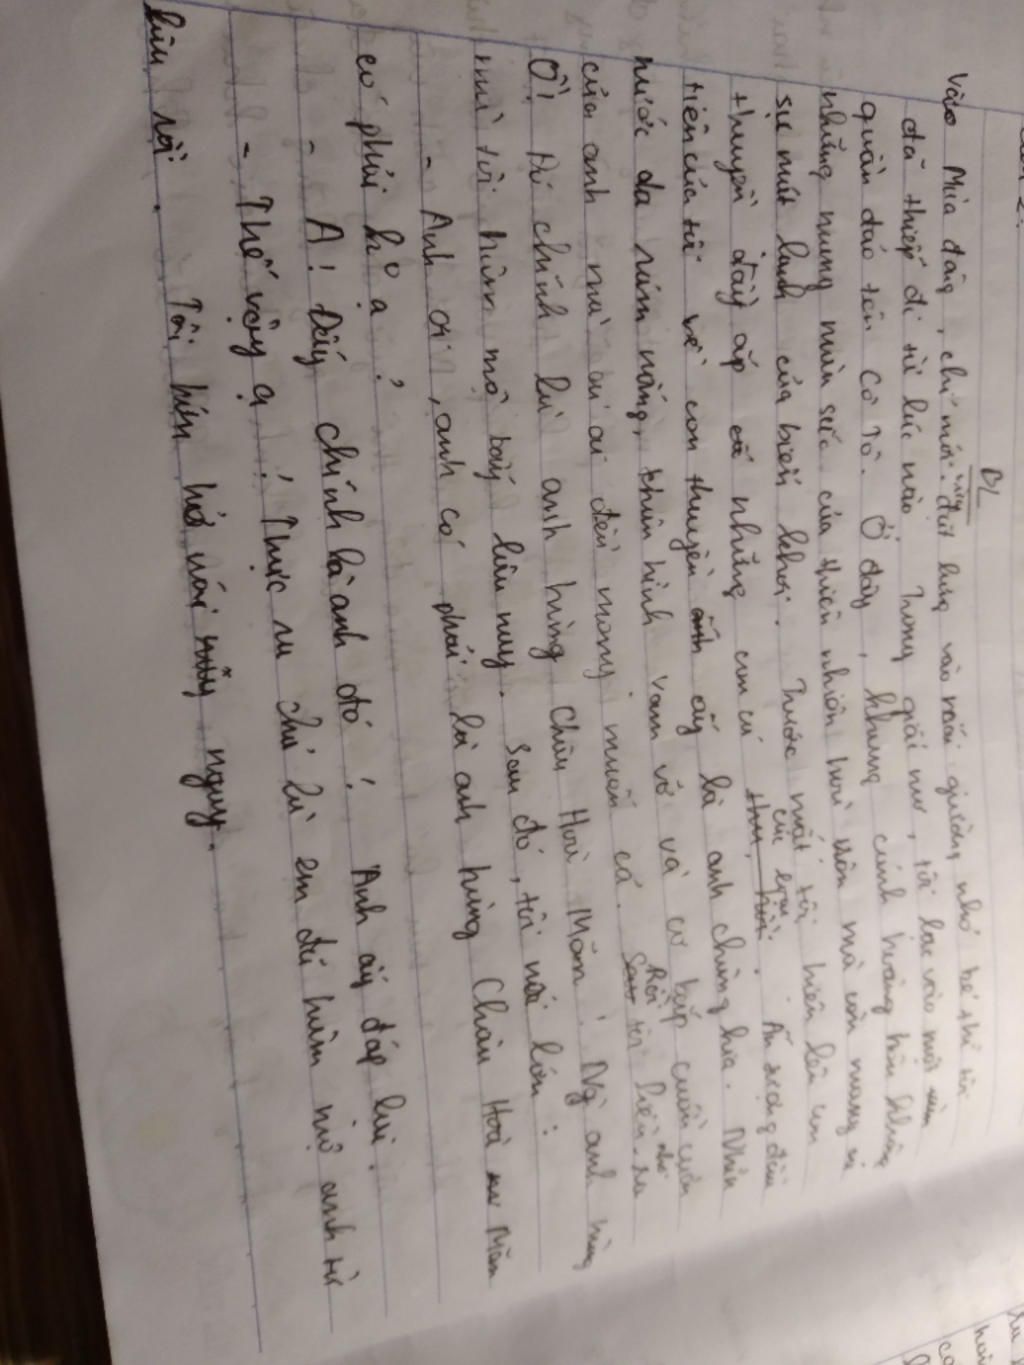 BL
Vào Mùa đông, chỉ mới vừa đặt lưng vào cái giường nhỏ bé thì tôi
đã thiếp đi từ lúc nào. Trong giấc mơ, tôi lạc vào một
quần đảo tên Cô Tô. Ở đây, khung cảnh hoàng hôn không
những mang màu sắc của thiên nhiên trời thôn mà còn mang
sự mát lành của biển khơi. Trước mắt tôi hiện lên con
thuyền đầy ắp những con cá. Ấn tượng đầu
tiên của tôi về con thuyền ấy là anh chàng kia. Nhìn
nước da rám nắng, thân hình vạm vỡ và cơ bắp cuồn cuộn
của anh mà ai ai đều mong muốn có. Rồi tôi liền nhớ ra
Ồ! Đó chính là anh hùng Châu Hoà Mãn. Người anh hùng
mà tôi hâm mộ bấy lâu nay. Sau đó, tôi nói lớn:
- Anh ơi, anh có phải là anh hùng Châu Hoà Mãn
có phải hổ ạ?
- A! Đấy chính là anh đó! Anh ấy đáp lại.
- Thế vậy ạ! Thực ra chú là em đã hâm mộ anh từ
lâu rồi.
Tôi hớn hở nói ngay.